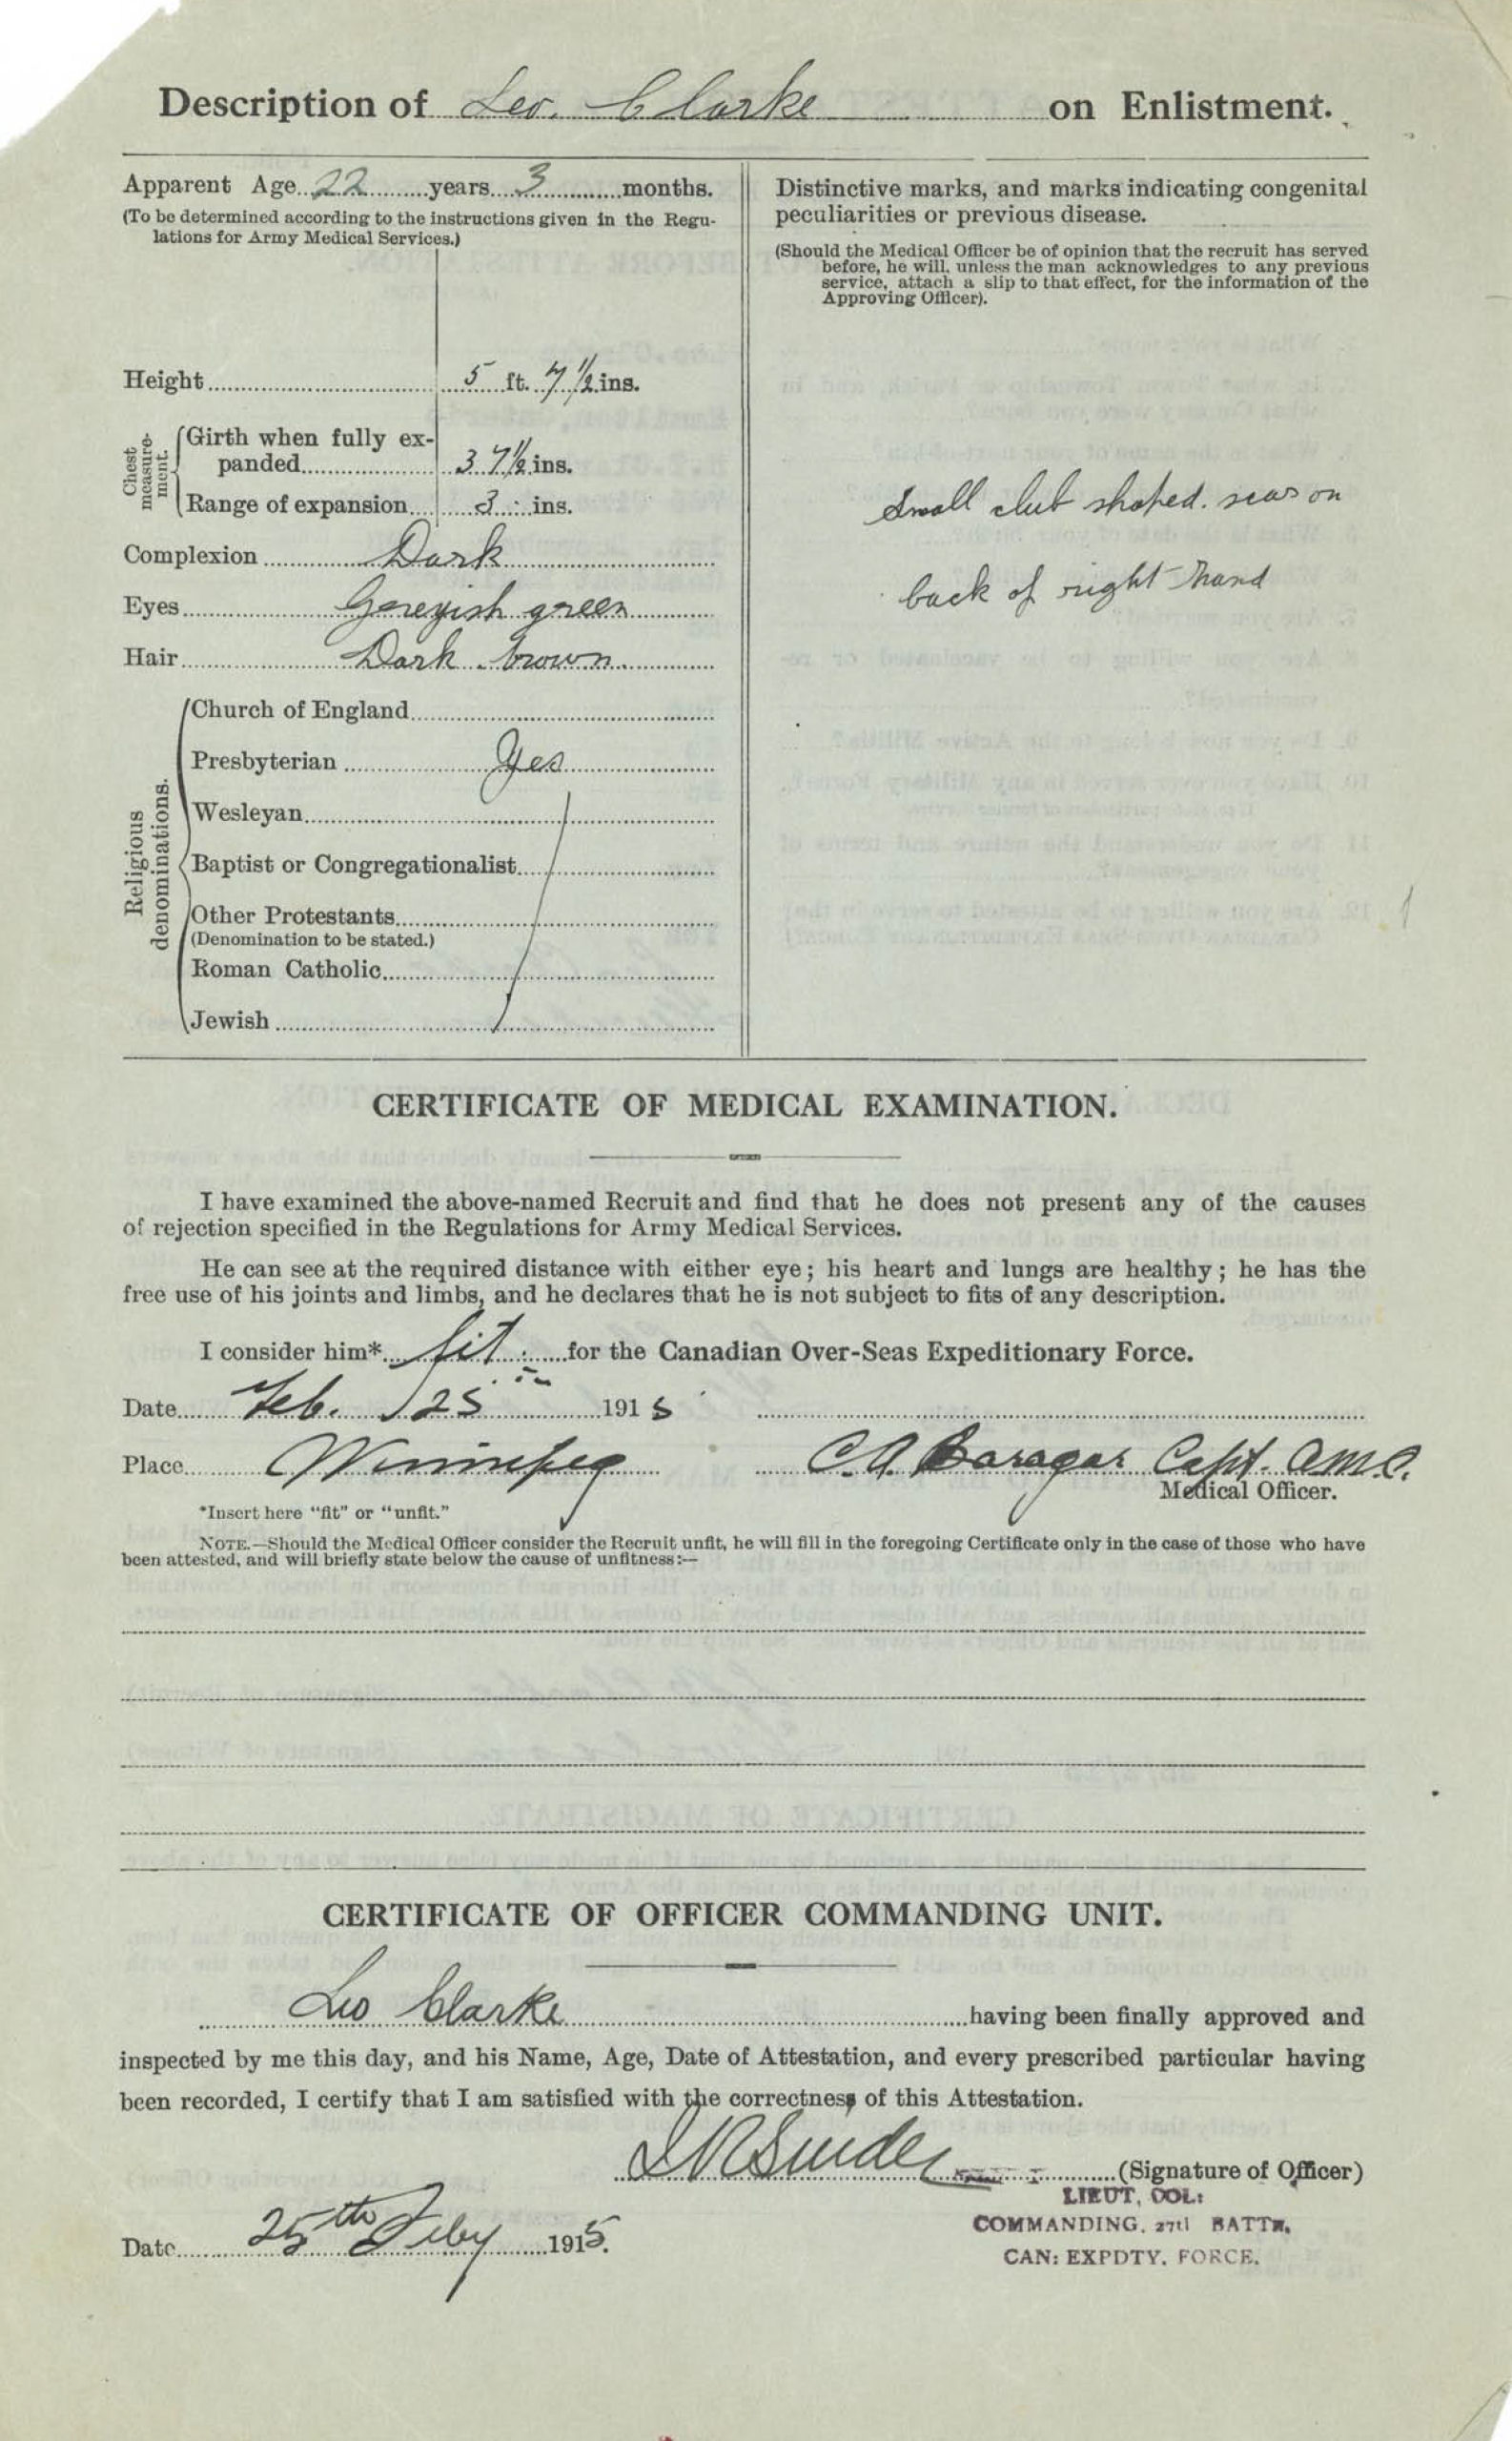 Description of Leo. Clarke on Enlistment.
Apparent Age 22 years 3 months.
(To be determined according to the instructions given in the Regu-
lations for Army Medical Services.)
Height 5 ft. 7 1/2 ins.
Chest measure-ment.
Girth when fully ex-
panded 37 1/2 ins.
Range of expansion 3 ins.
Complexion Dark
Eyes Greyish green
Hair Dark brown
Religious denominations.
Church of England
Presbyterian Yes
Wesleyan
Baptist or Congregationalist
Other Protestants
(Denomination to be stated.)
Roman Catholic
Jewish
Distinctive marks, and marks indicating congenital
peculiarities or previous disease.
(Should the Medical Officer be of opinion that the recruit has served
before, he will, unless the man acknowledges to any previous
service, attach a slip to that effect, for the information of the
Approving Officer).
Small club shaped. scar on
back of right hand
CERTIFICATE OF MEDICAL EXAMINATION.
I have examined the above-named Recruit and find that he does not present any of the causes
of rejection specified in the Regulations for Army Medical Services.
He can see at the required distance with either eye; his heart and lungs are healthy; he has the
free use of his joints and limbs, and he declares that he is not subject to fits of any description.
I consider him* fit for the Canadian Over-Seas Expeditionary Force.
Date Feb. 25 1915
Place Winnipeg C.A. Baragar Capt. A.M.C.
Medical Officer.
*Insert here "fit" or "unfit."
NOTE.—Should the Medical Officer consider the Recruit unfit, he will fill in the foregoing Certificate only in the case of those who have
been attested, and will briefly state below the cause of unfitness:—
CERTIFICATE OF OFFICER COMMANDING UNIT.
Leo Clarke having been finally approved and
inspected by me this day, and his Name, Age, Date of Attestation, and every prescribed particular having
been recorded, I certify that I am satisfied with the correctness of this Attestation.
(Signature of Officer)
LIEUT. COL:
COMMANDING. 27th BATTN.
CAN: EXPDTY. FORCE.
Date 25th Feby 1915.